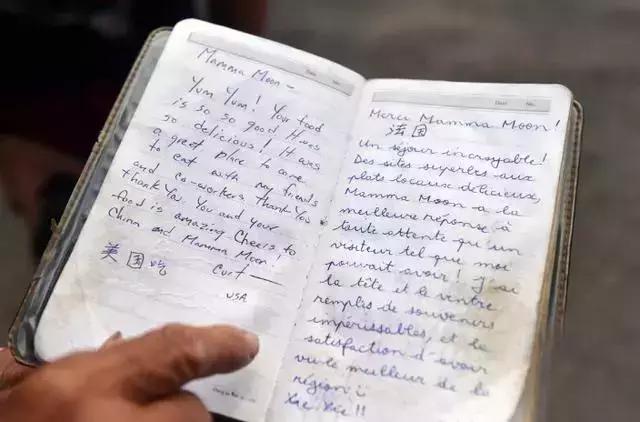 Mamma Moon –
Yum Yum! Your food
is so so good It was
so delicious! It was
a great place to come
to eat with my friends
and co-workers Thank You
Thank You. You and your
food is amazing Cheers to
China and Mamma Moon!
美国吃 Curt
USA
Date No.
Merci Mamma Moon!
法国
Un séjour incroyable!
Des sites superbes aux
plats locaux délicieux,
Mamma Moon a la
meilleure réponse à
toute attente qu'un
visiteur tel que moi
pouvait avoir! J'ai
la tête et le ventre
remplis de souvenirs
impérissables, et la
satisfaction d'avoir
vu le meilleur de la
région
Xie Xie!!